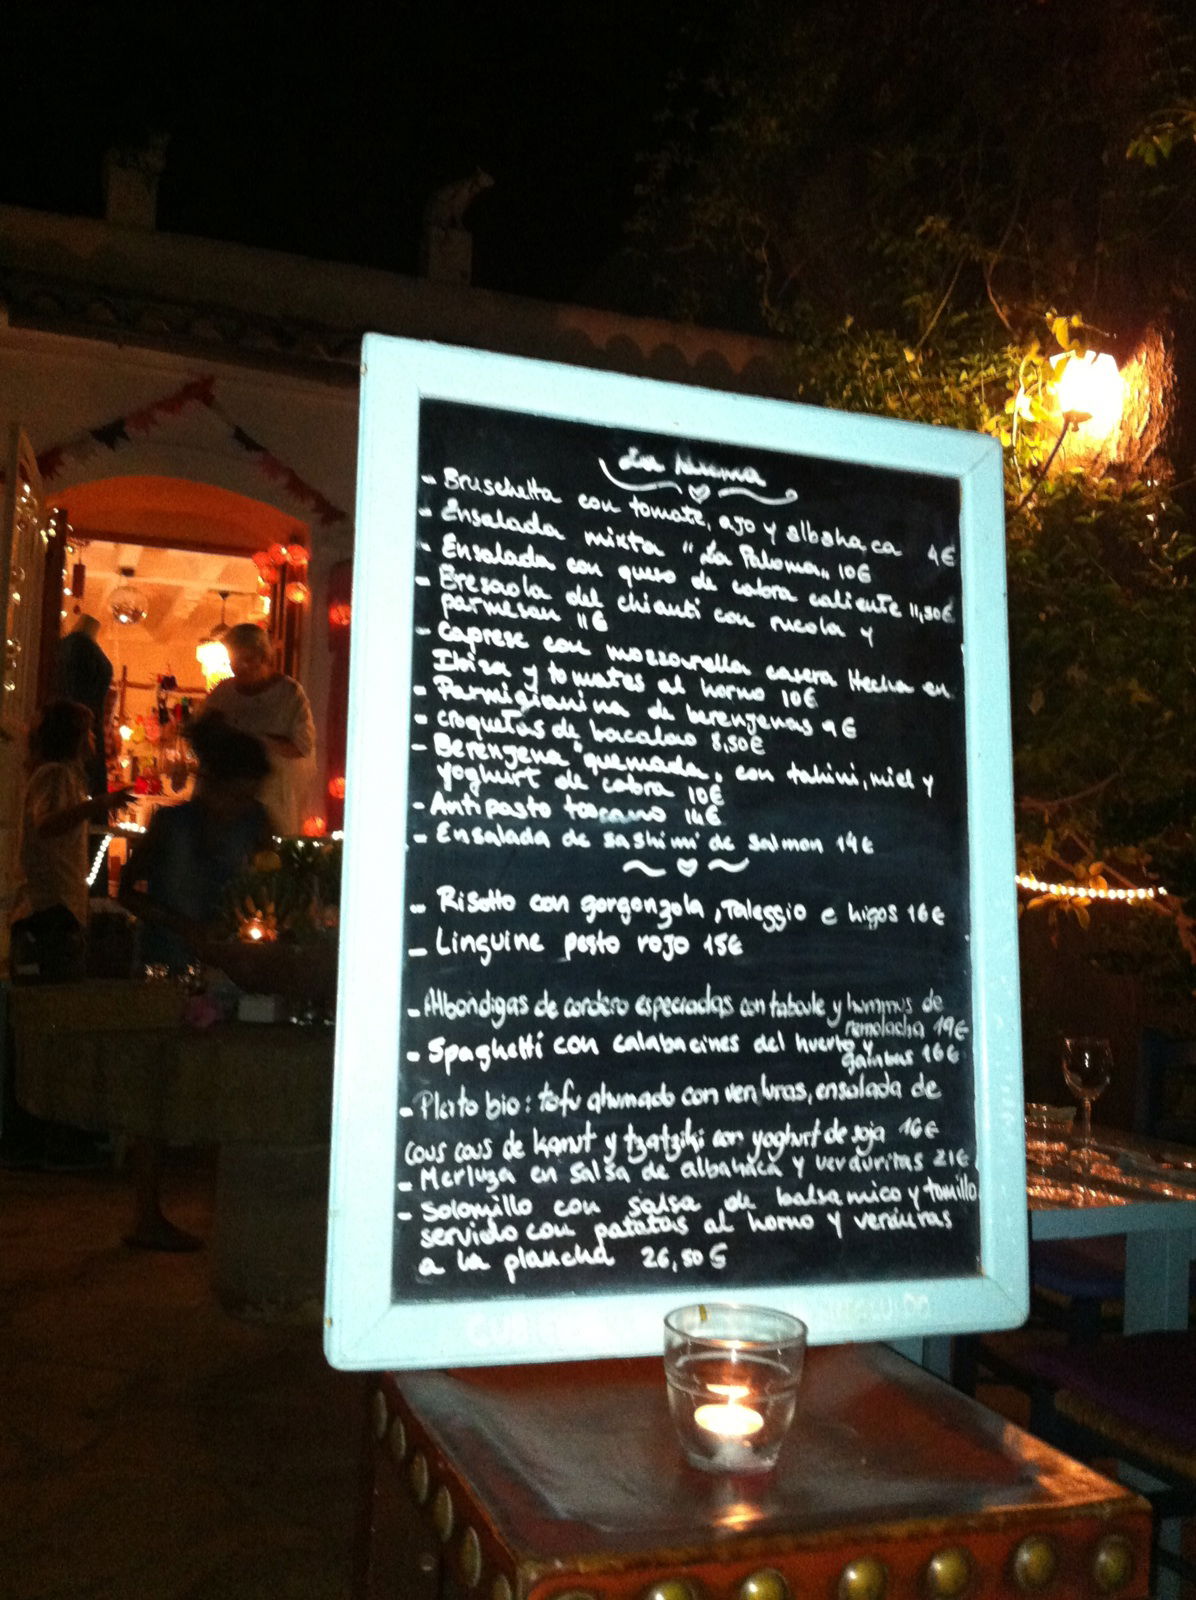 La
- Bruschetta con tomate, ajo y albahaca 4€
- Ensalada mixta "La Paloma" 10€
- Ensalada con queso de cabra caliente 11,50€
- Bresaola del chianti con rucola y
parmesan 11€
- Caprese con mozzarella casera Hecha en
Ibiza y tomates al horno 10€
- Parmigianina de berenjenas 9€
- croquetas de bacalao 8,50€
- Berenjena "quemada" con tahini, miel y
yoghurt de cabra 10€
- Antipasto toscano 14€
- Ensalada de sashimi de salmon 14€
- Risotto con gorgonzola, Taleggio e higos 16€
- Linguine pesto rojo 15€
- Albondigas de cordero especiadas con taboule y hummus de
remolacha 19€
- Spaghetti con calabacines del huerto y
gambas 16€
- Plato bio: tofu ahumado con verduras, ensalada de
cous cous de kamut y tzatziki con yoghurt de soja 16€
- Merluza en salsa de albahaca y verduritas 21€
- Solomillo con salsa de balsamico y tomillo
servido con patatas al horno y verduras
a la plancha 26,50€